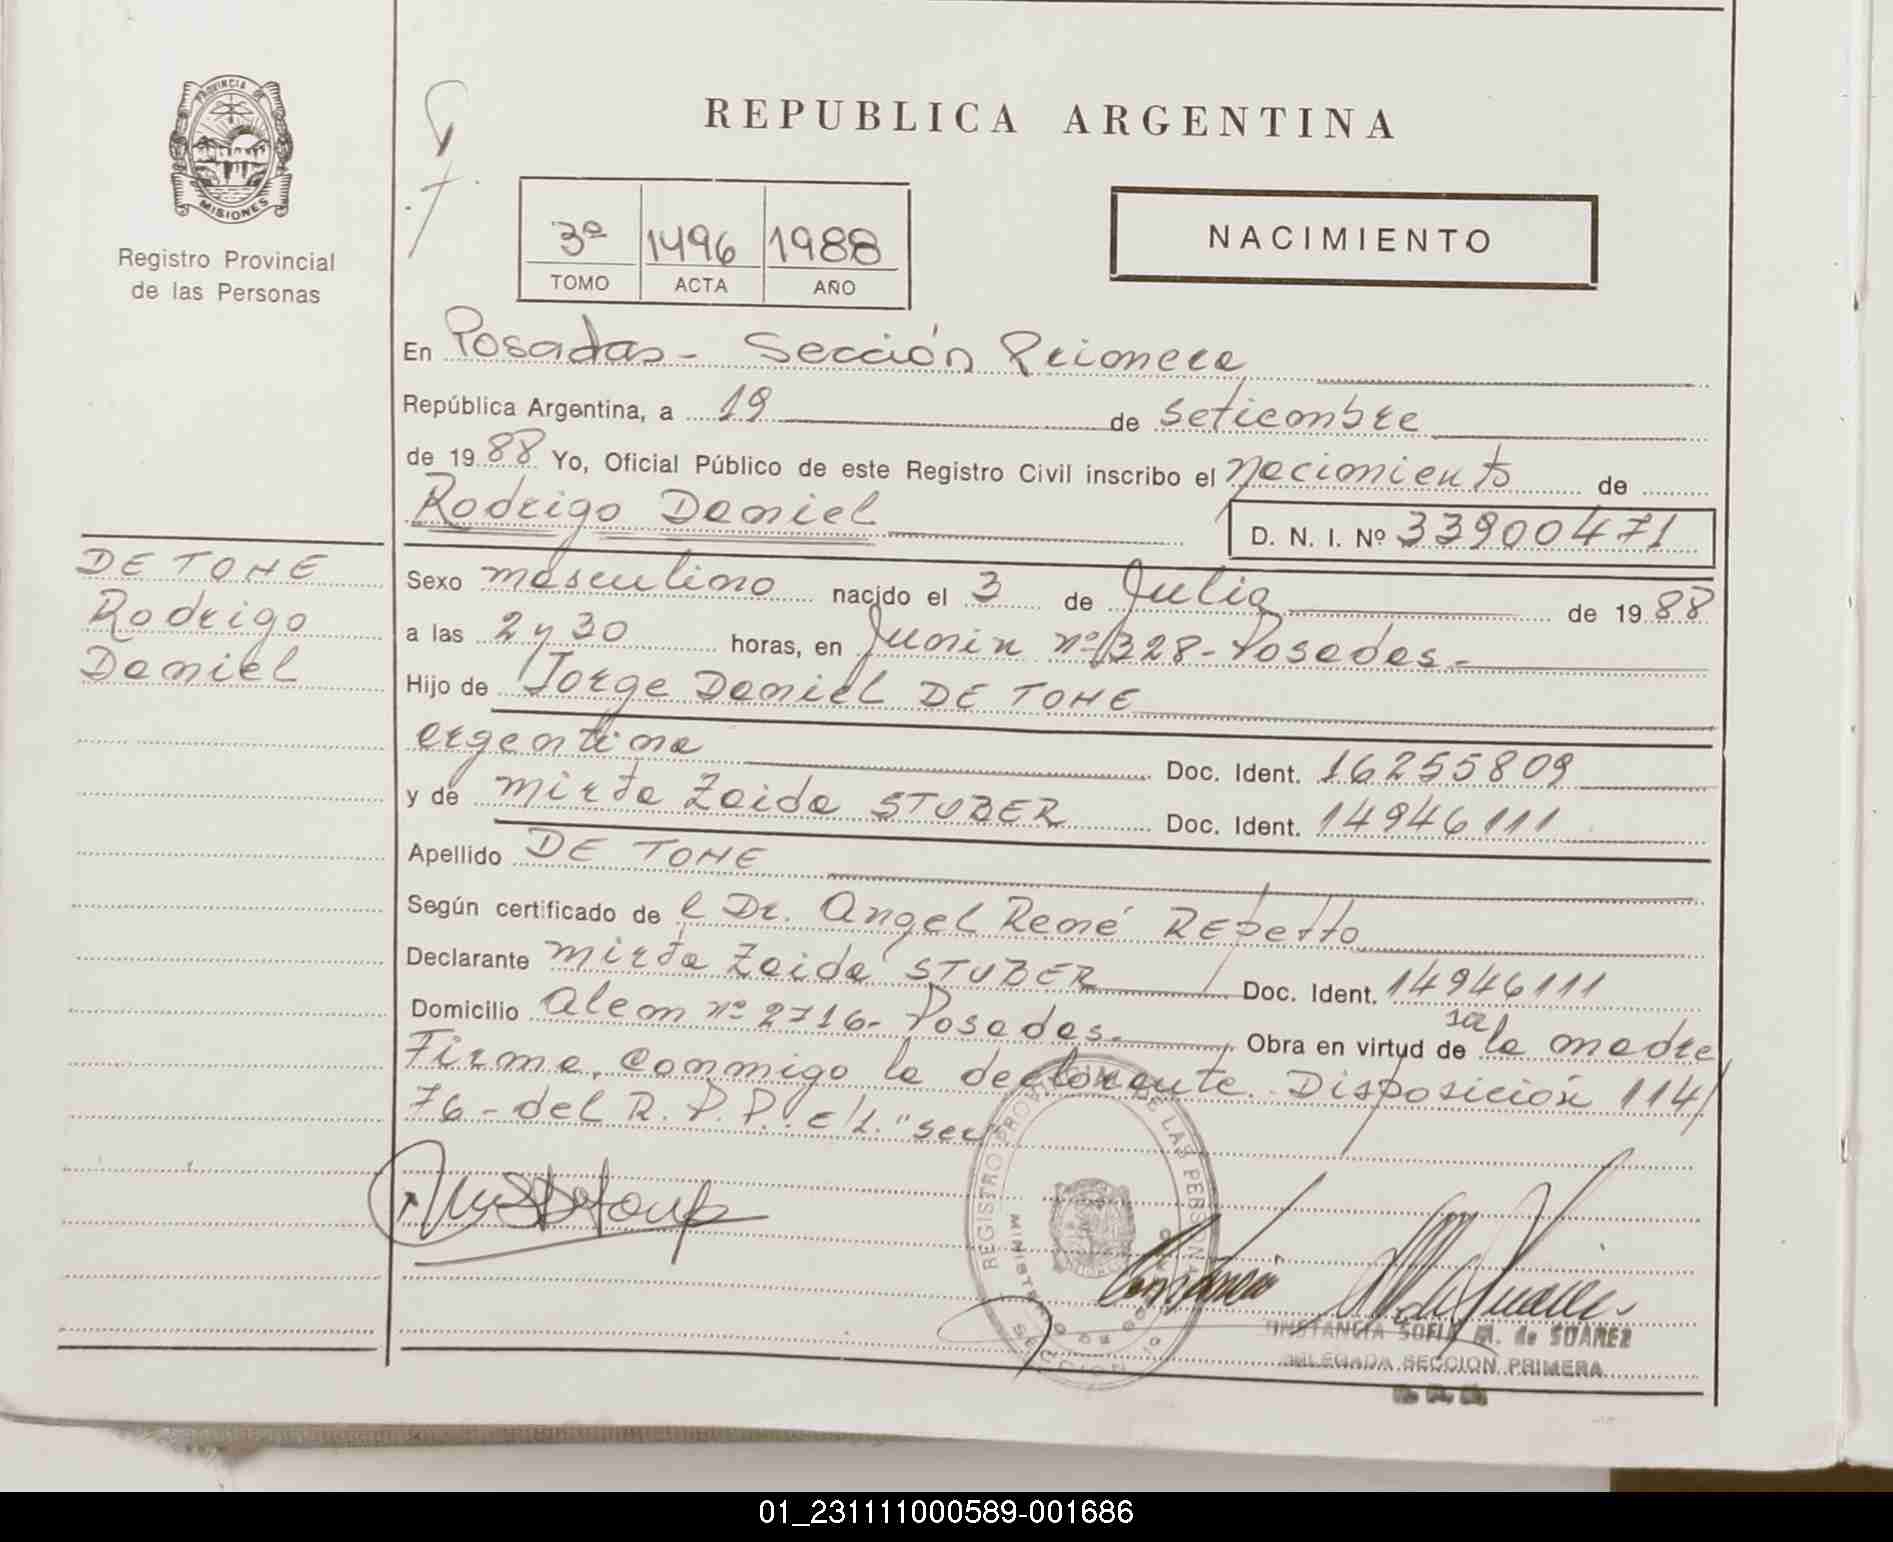 PROVINCIA DE
MISIONES
Registro Provincial
de las Personas
REPUBLICA ARGENTINA
3º 1496 1988
TOMO ACTA AÑO
NACIMIENTO
En Posadas - Sección Primera
República Argentina, a 19 de Setiembre
de 1988 Yo, Oficial Público de este Registro Civil inscribo el nacimiento de
Rodrigo Daniel
D. N. I. Nº 33900471
DE TOME
Rodrigo
Daniel
Sexo masculino nacido el 3 de Julio de 1988
a las 2 y 30 horas, en Junin nº 1328 - Posadas -
Hijo de Jorge Daniel DE TOME
argentina Doc. Ident. 16255809
y de Mirta Zaida STUBER Doc. Ident. 14946111
Apellido DE TOME
Según certificado de l Dr. Angel René REpetto
Declarante Mirta Zaida STUBER Doc. Ident. 14946111
Domicilio Alem nº 2716 - Posadas - Obra en virtud de ser la madre
Firma conmigo la declarante. Disposición 114/
76 - del R. P. P. e/l. "ser"
REGISTRO PROVINCIAL DE LAS PERSONAS
SECCION 1º
CONSTANCIA SOFIA M. de SUAREZ
DELEGADA SECCION PRIMERA
01_231111000589-001686